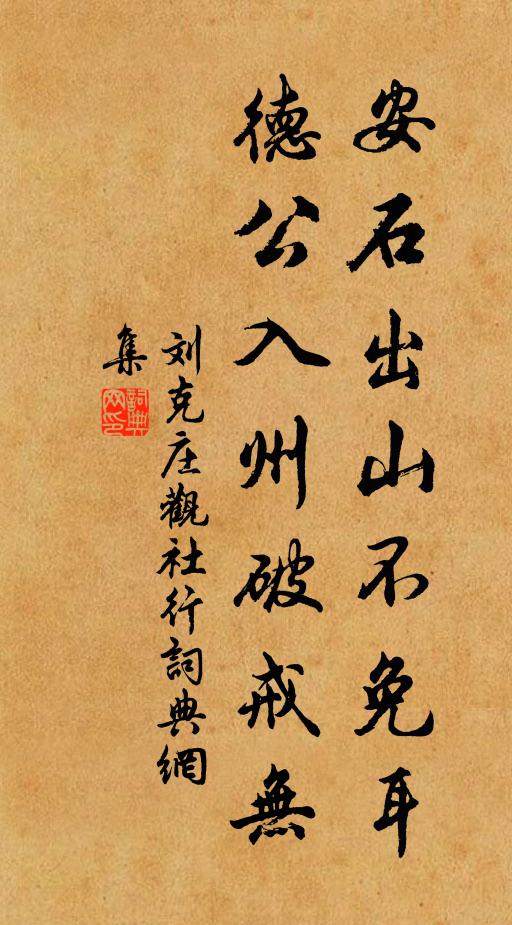 安石出山不免耳
德公入州破戒無
刘克庄觀社行詞典網
集
詞典网印